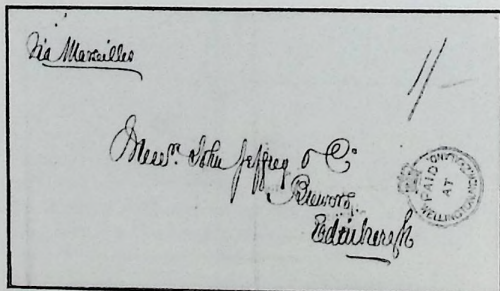 Via Marseilles
1/-
Messrs. John Jeffrey & Co
Brewers
Edinburgh
PAID
AT
WELLINGTON NEW ZEALAND